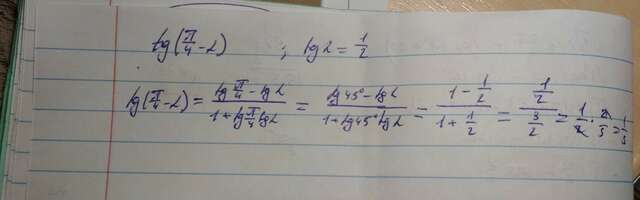 tg(π/4 - α) ; tg α = 1/2
tg(π/4 - α) = (tg π/4 - tg α)/(1 + tg π/4 tg α) = (tg 45° - tg α)/(1 + tg 45° tg α) = (1 - 1/2)/(1 + 1/2) = (1/2)/(3/2) = 1/2 · 2/3 = 1/3